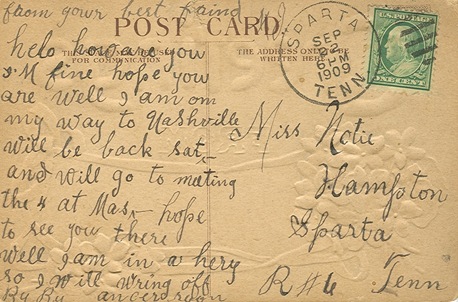 from your best fraind
POST CARD
FOR COMMUNICATION
THE ADDRESS ONLY
WRITTEN HERE
SPARTA
SEP
6 PM
1909
TENN.
helo how are you
I M fine hope you
are well I am om
my way to Nashville
will be back sat,
and will go to meting
the 4 at Mas, hope
to see you there
Well I am in a hery
so I will wring off
By By ancer soon
Miss Notie
Hampton
Sparta
R#6 Tenn